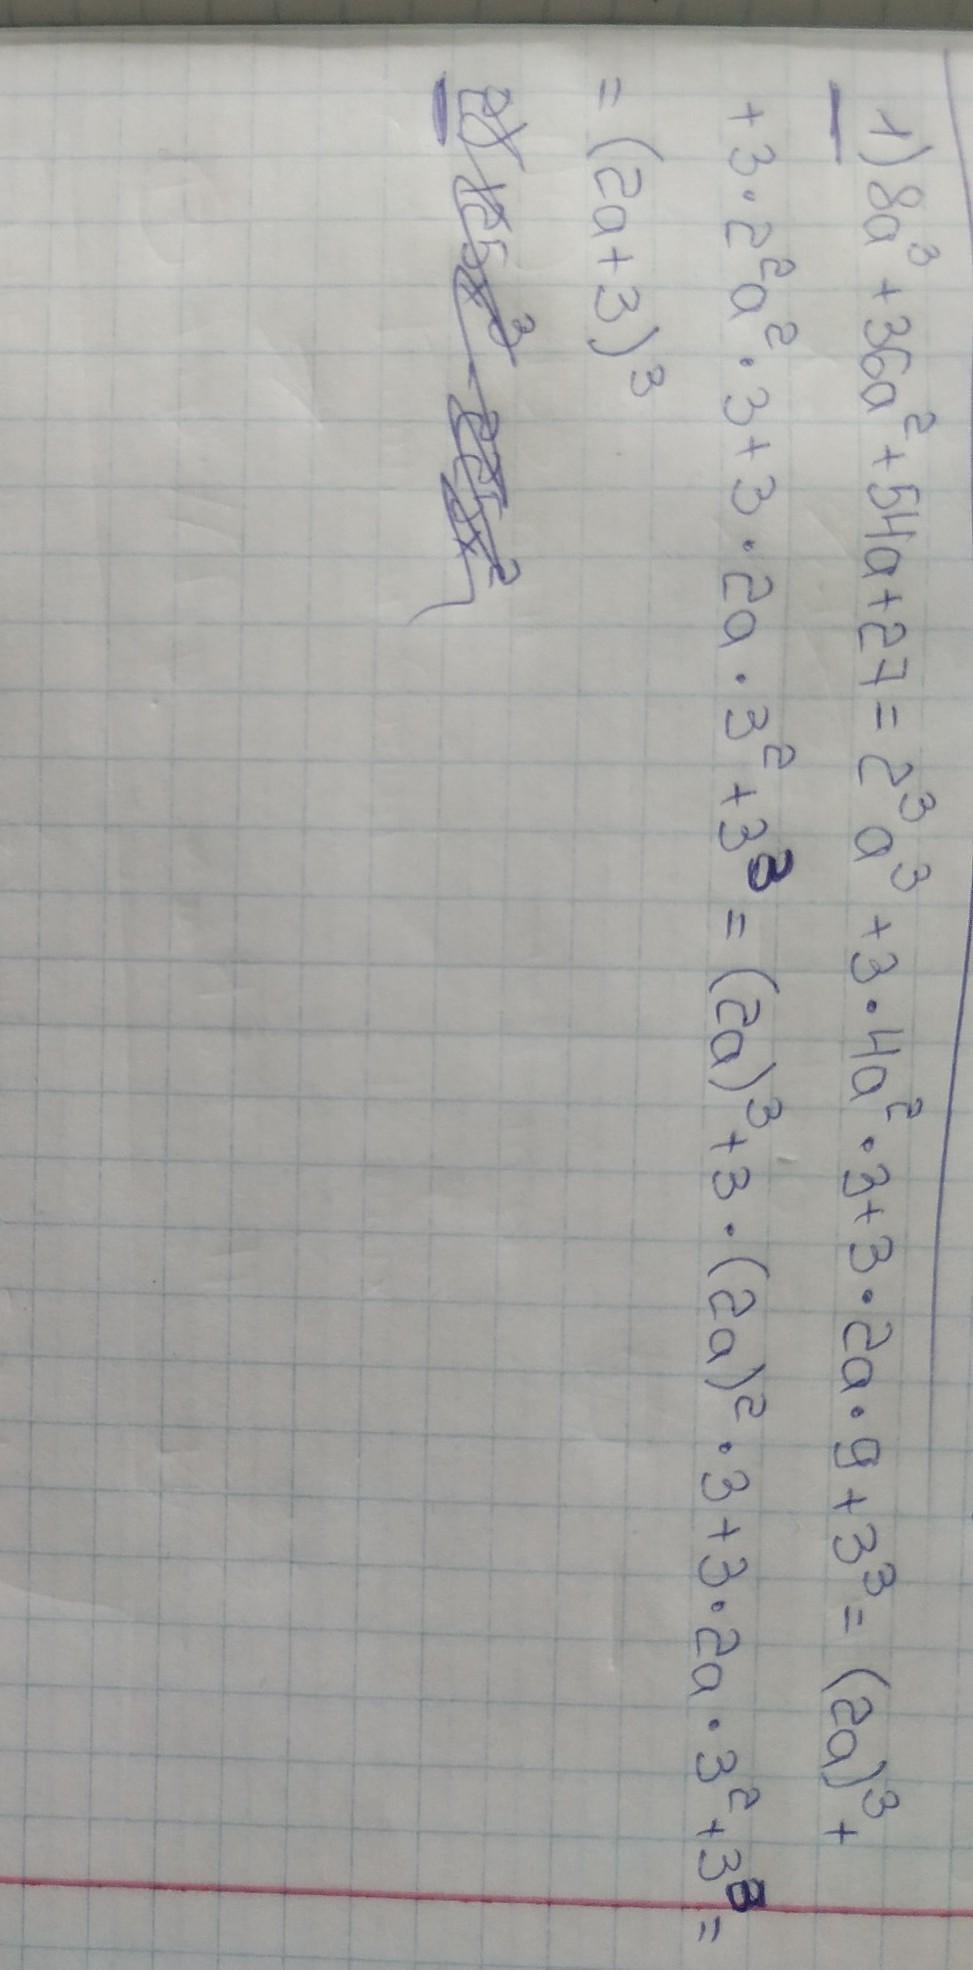 1) 8a³ + 36a² + 54a + 27 = 2³a³ + 3·4a²·3 + 3·2a·9 + 3³ = (2a)³ +
+ 3·2²a²·3 + 3·2a·3² + 3³ = (2a)³ + 3·(2a)²·3 + 3·2a·3² + 3³ =
= (2a+3)³